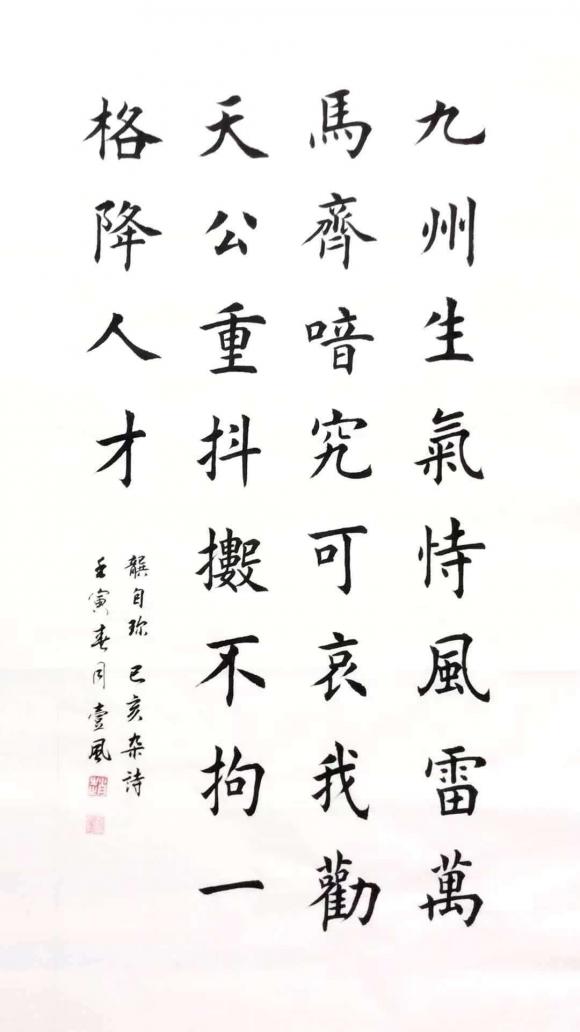 九州生氣恃風雷萬
馬齊喑究可哀我勸
天公重抖擻不拘一
格降人才
龔自珍 己亥杂詩
壬寅春月壹風